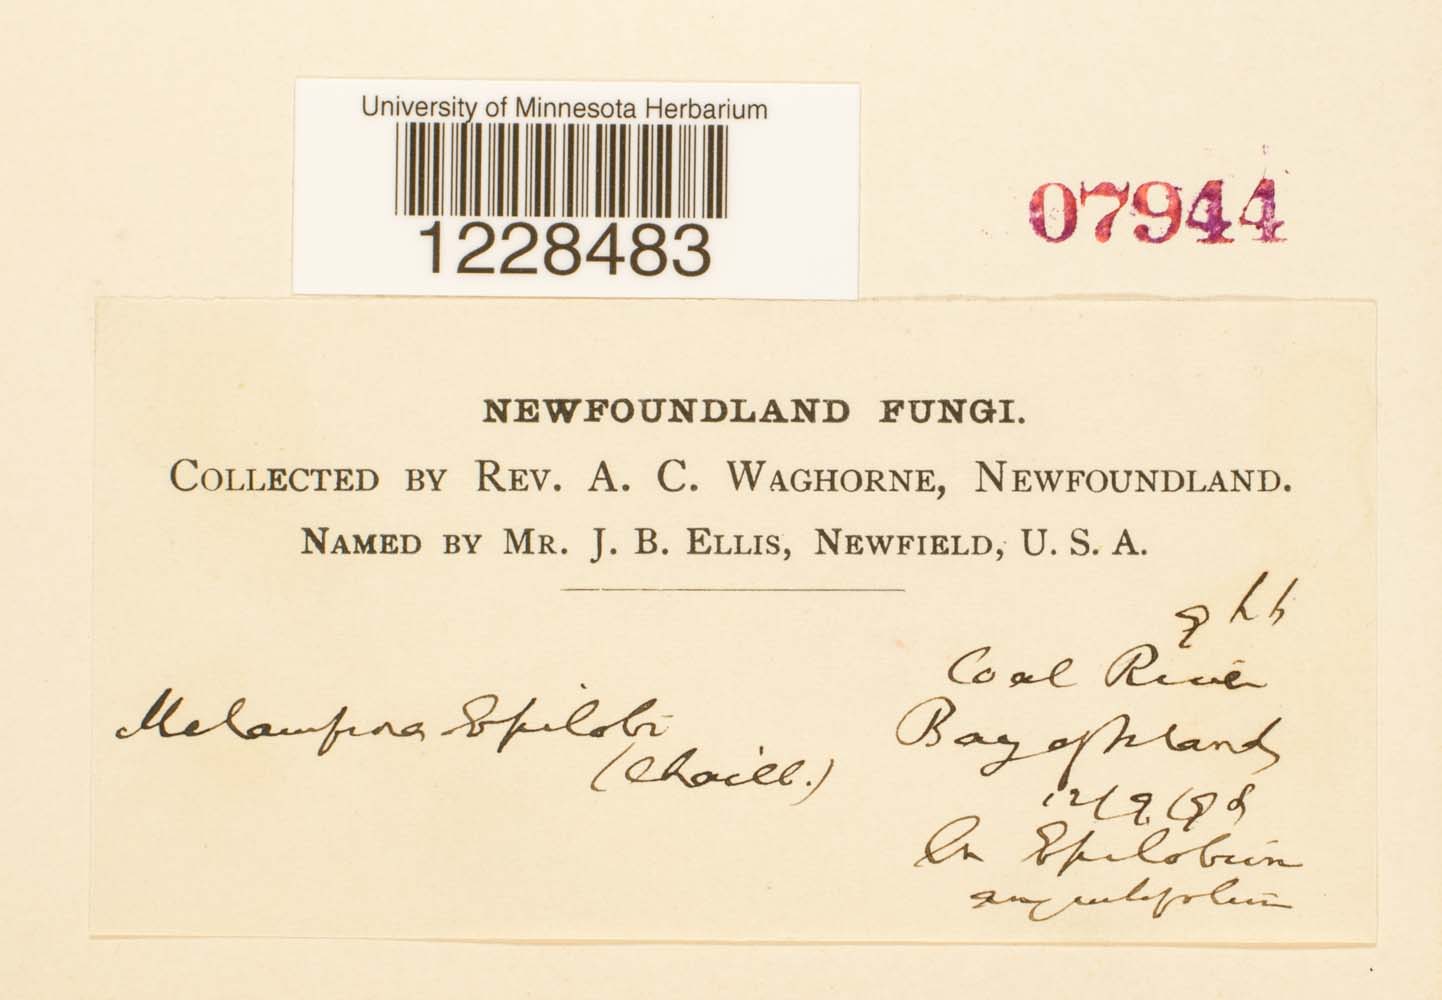 University of Minnesota Herbarium
1228483
07944
NEWFOUNDLAND FUNGI.
COLLECTED BY REV. A. C. WAGHORNE, NEWFOUNDLAND.
NAMED BY MR. J. B. ELLIS, NEWFIELD, U. S. A.
Coal River
Melampsora Epilobi
(Chaill.)
Bay of Islands
On Epilobium
angustifolium